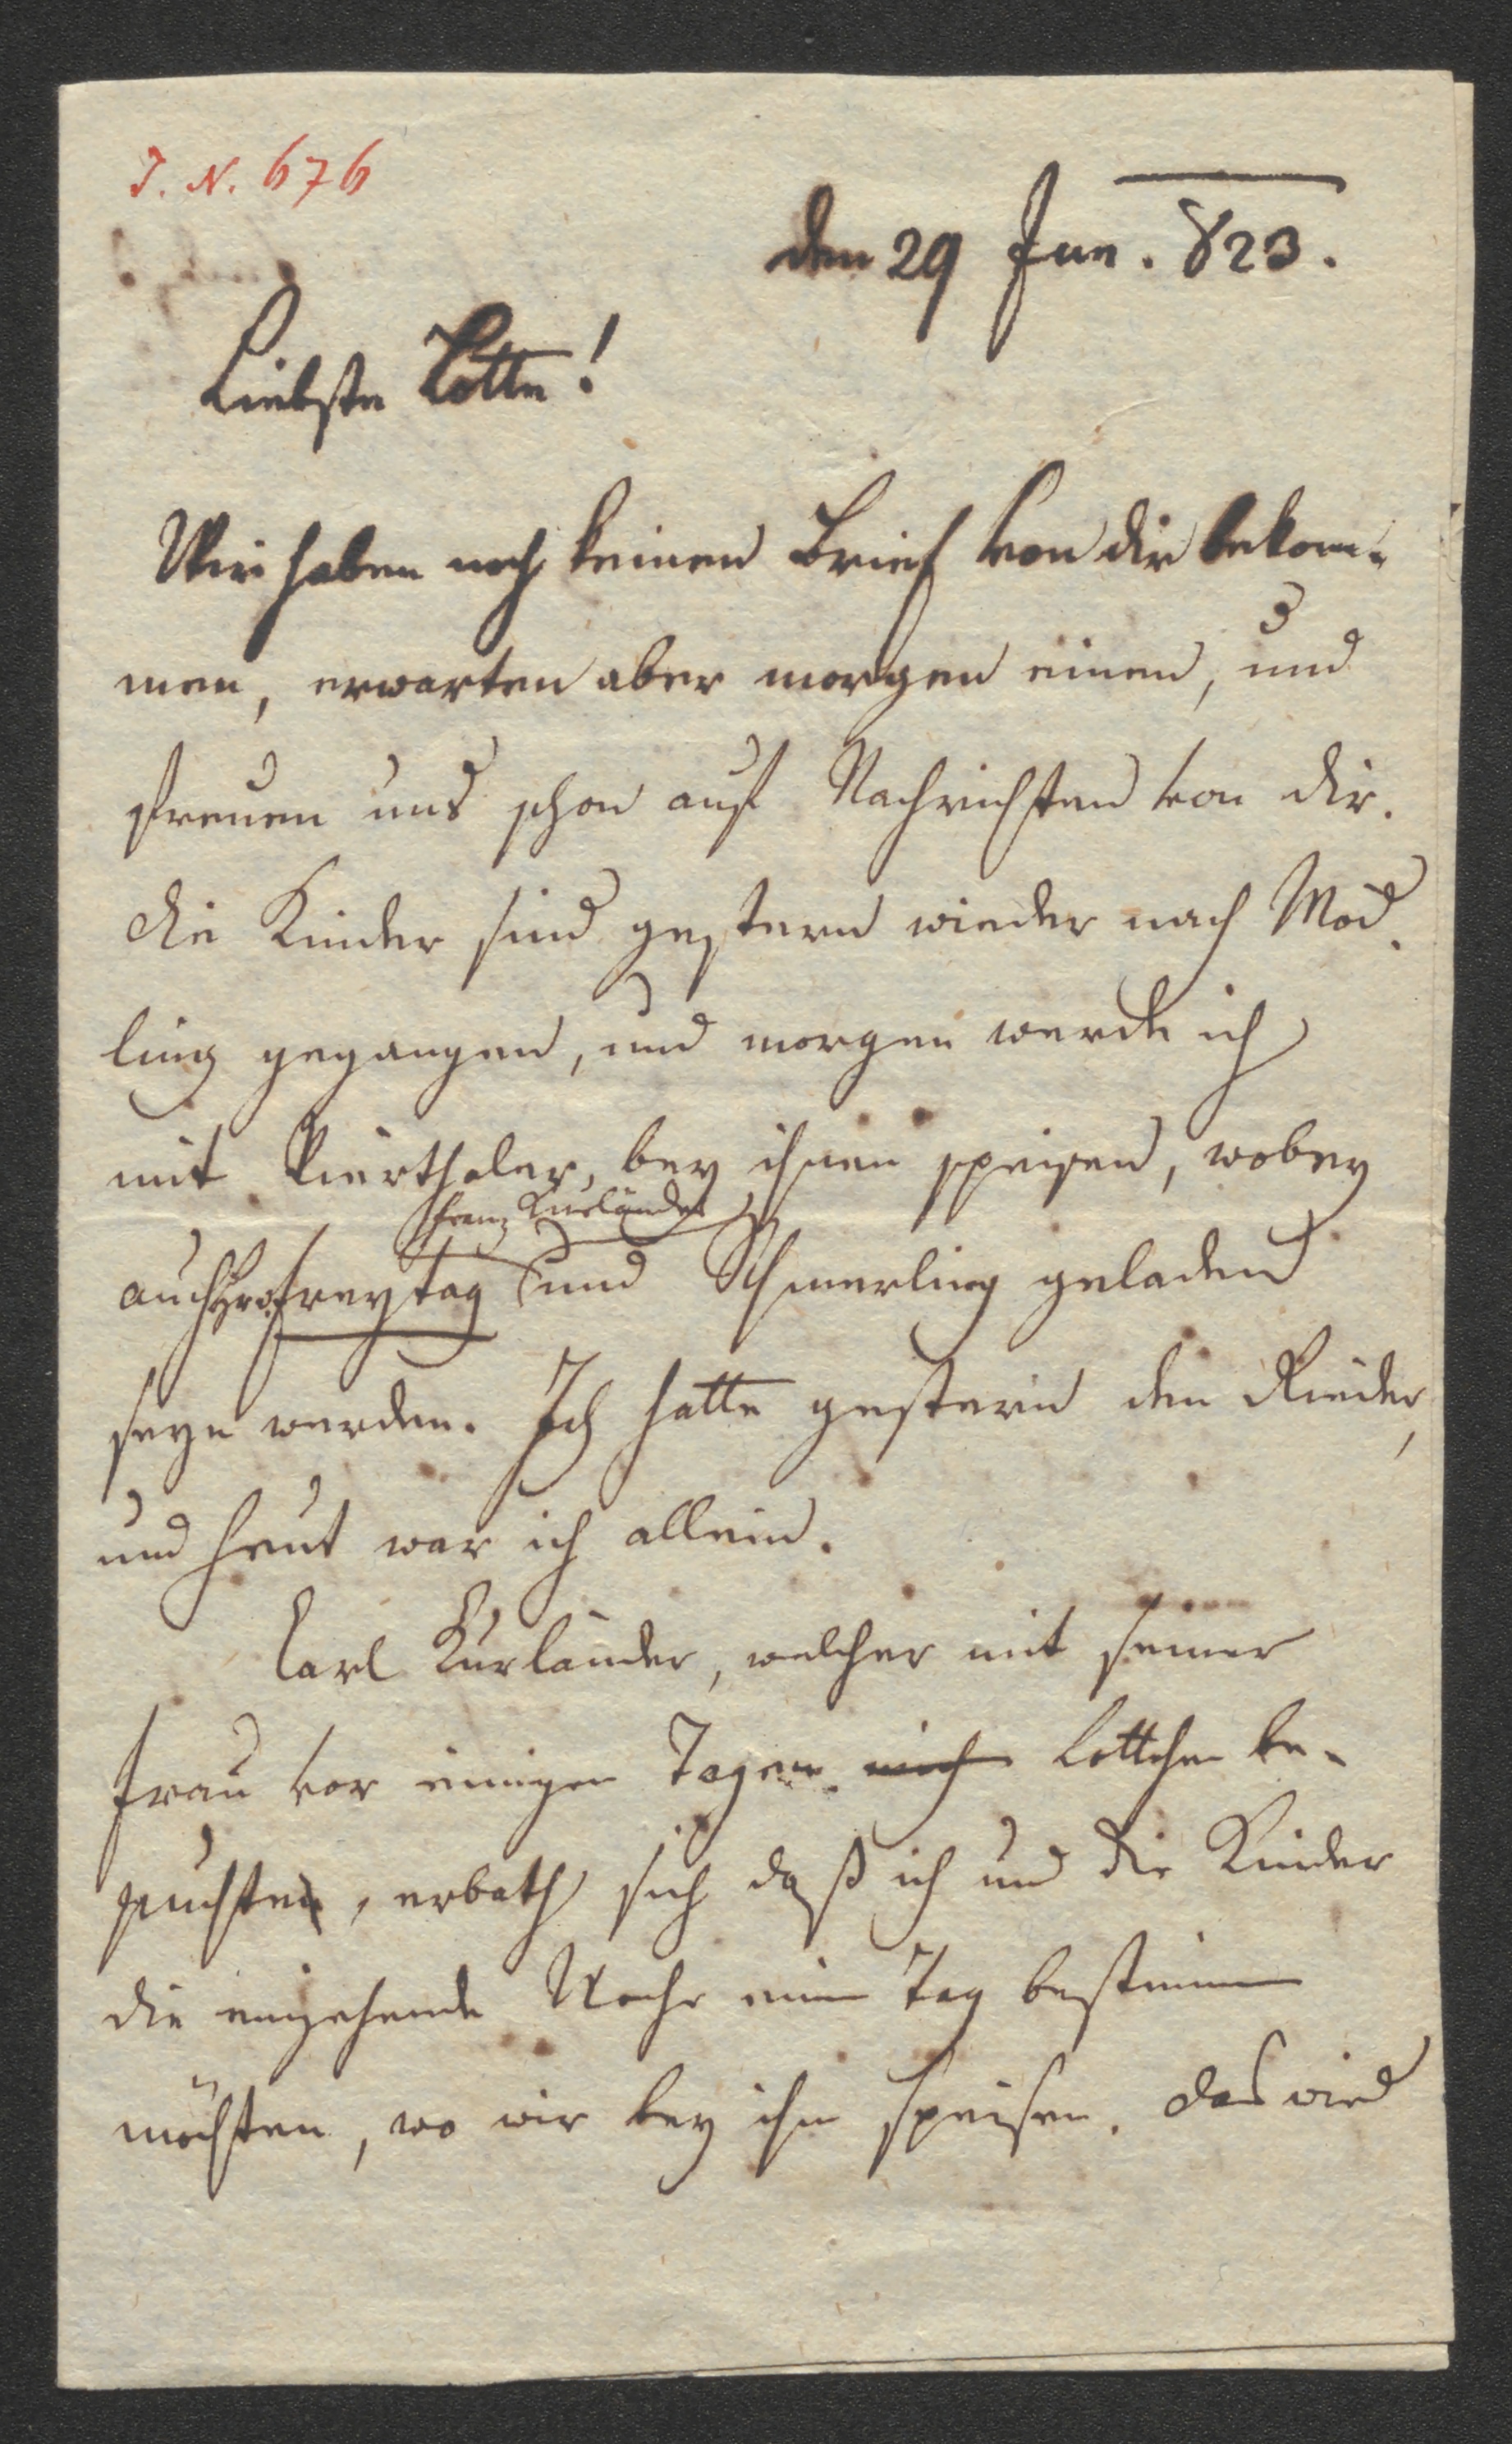 J. N. 676
den 29 Jun. 823.
Liebste Lotte!
Wir haben noch keinen Brief von dir bekom-
men, erwarten aber morgen einen, und
freuen uns schon auf Nachrichten von dir.
Die Kinder sind gestern wieder nach Möd-
ling gegangen, und morgen werde ich
mit Vierthaler, bey ihnen speisen, wobey
Franz Kurländer
auch Hr. Freytag und Schmerling geladen
seyn werden. Ich hatte gestern den Rieder,
und heut war ich allein.
Carl Kurländer, welcher mit seiner
Frau vor einigen Tagen mich Lottchen be-
suchten, erbath sich daß ich und die Kinder
die eingehende Woche einen Tag bestimmen
möchten, wo wir bey ihm speisen. Das wird